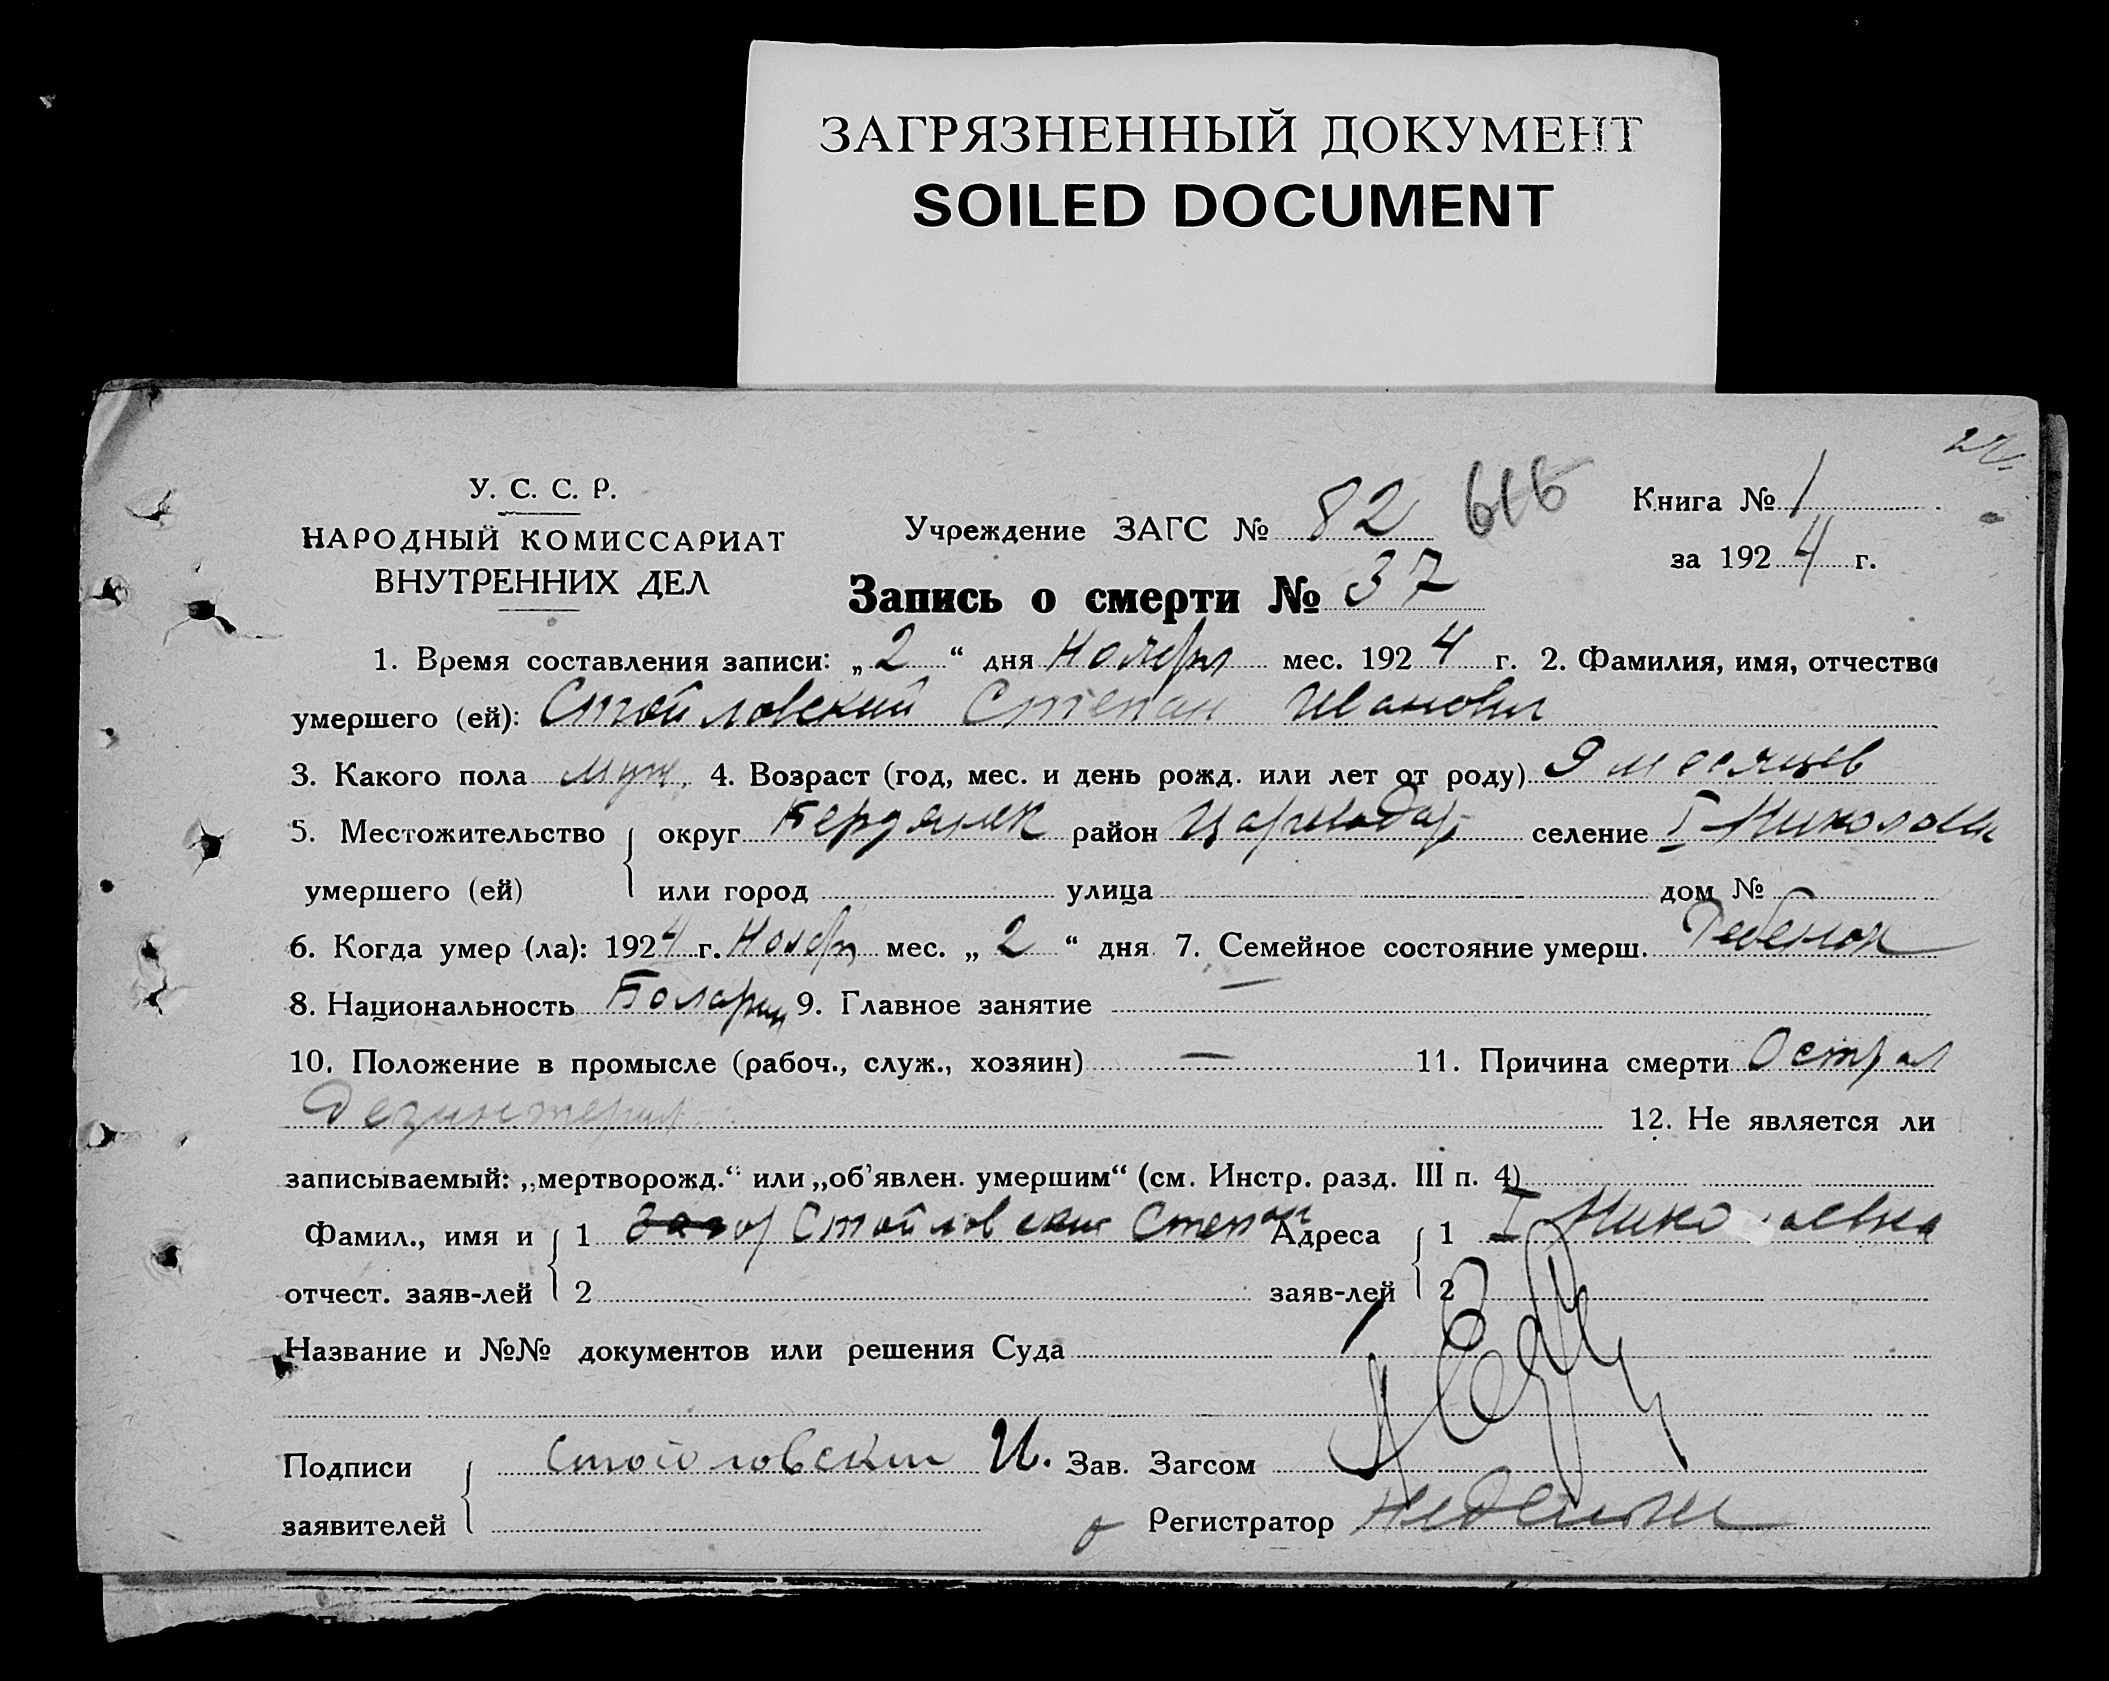 ЗАГРЯЗНЕННЫЙ ДОКУМЕНТ
SOILED DOCUMENT
У. С. С. Р.
НАРОДНЫЙ КОМИССАРИАТ
ВНУТРЕННИХ ДЕЛ
Учреждение ЗАГС № 82 616
Книга № 1
за 1924 г.
Запись о смерти № 37
1. Время составления записи: „2“ дня Ноября мес. 1924 г. 2. Фамилия, имя, отчество
умершего (ей): Стойловский Степан Иванович
3. Какого пола муж. 4. Возраст (год, мес. и день рожд. или лет от роду) 9 месяцев
5. Местожительство округ Бердянск район Цареводар селение I Николаевк
умершего (ей) или город улица дом №
6. Когда умер (ла): 1924 г. Ноябр мес. „2“ дня 7. Семейное состояние умерш. Ребенок
8. Национальность Болгарин 9. Главное занятие —
10. Положение в промысле (рабоч., служ., хозяин) — 11. Причина смерти Острая
Дезинтерия 12. Не является ли
записываемый: „мертворожд.“ или „об'явлен. умершим“ (см. Инстр. разд. III п. 4)
Фамил., имя и 1 Стойловский Степан Адреса 1 I Николаевка
отчест. заяв-лей 2 заяв-лей 2
Название и №№ документов или решения Суда
Подписи Стойловский И. Зав. Загсом
заявителей Регистратор